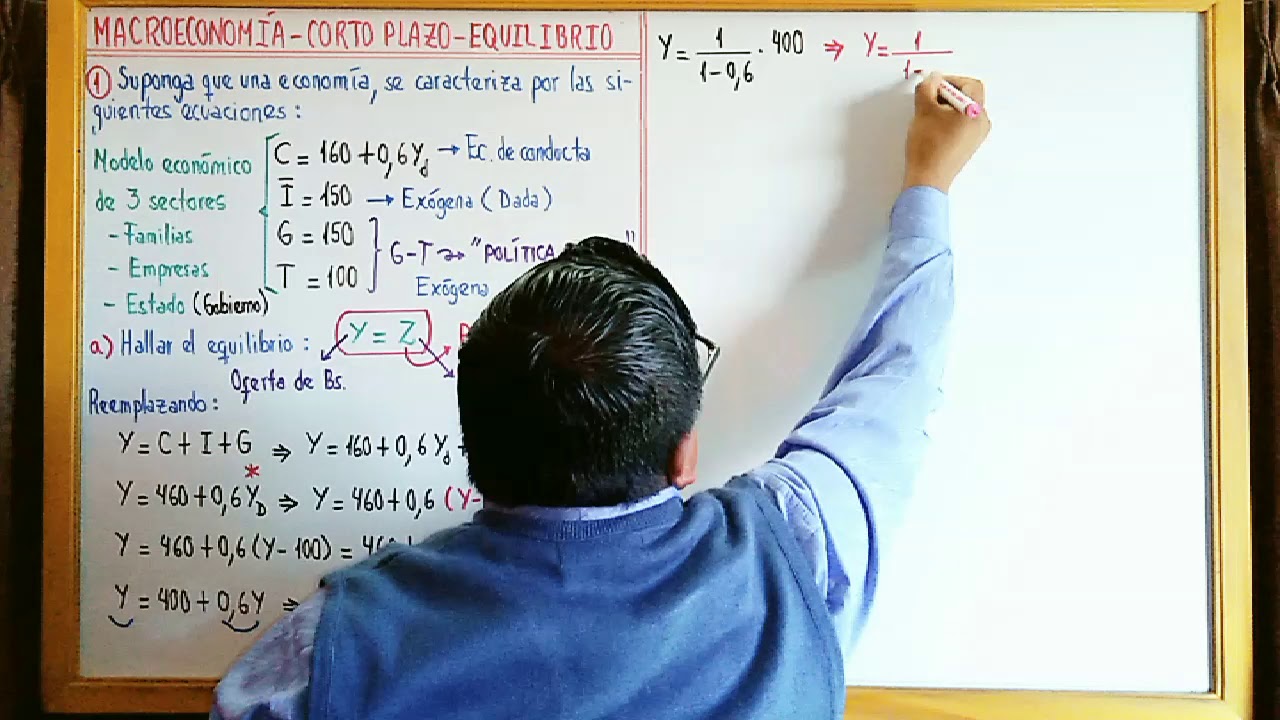 MACROECONOMÍA-CORTO PLAZO-EQUILIBRIO
① Suponga que una economía, se caracteriza por las si-
guientes ecuaciones:
Modelo económico
de 3 sectores
- Familias
- Empresas
- Estado (Gobierno)
C = 160 + 0,6Yd → Ec. de conducta
Ī = 150 → Exógena (Dada)
G = 150
T = 100
G-T → "POLÍTICA "
Exógena
a) Hallar el equilibrio: Y = Z
Oferta de Bs.
Reemplazando:
Y = C + I + G ⇒ Y = 160 + 0,6Yd +
Y = 460 + 0,6YD* ⇒ Y = 460 + 0,6 (Y-
Y = 460 + 0,6 (Y - 100) = 460
Y = 400 + 0,6Y ⇒
Y = 1/(1 - 0,6) · 400 ⇒ Y = 1/(1-